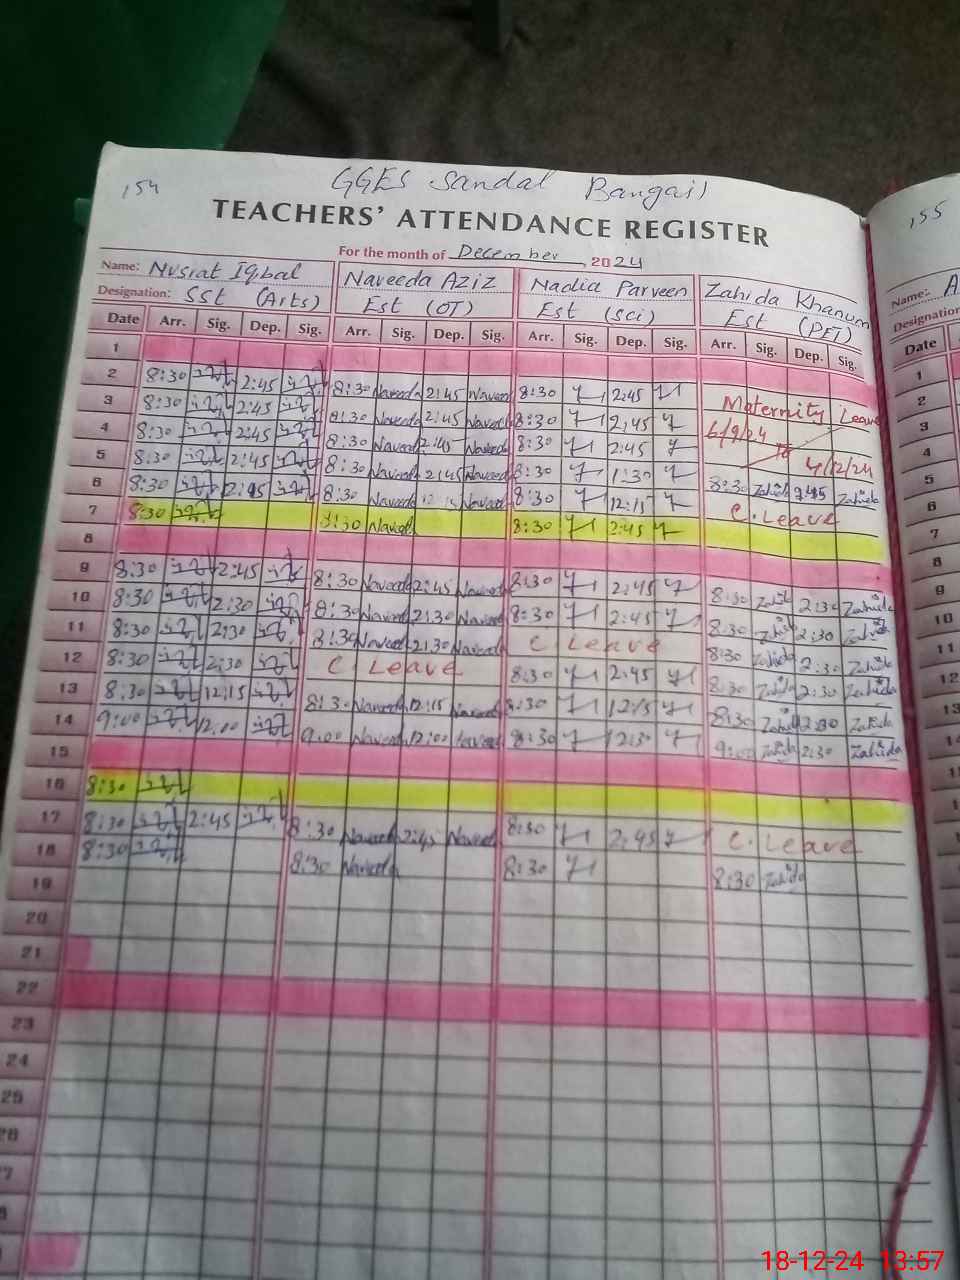 154
GGES Sandal Bangail
155
TEACHERS' ATTENDANCE REGISTER
For the month of December, 2024
Name: Nusrat Iqbal Naveeda Aziz Nadia Parveen Zahida Khanum Name: A
Designation: SSt (Arts) Est (OT) Est (sci) Est (PET) Designation
Date Arr. Sig. Dep. Sig. Arr. Sig. Dep. Sig. Arr. Sig. Dep. Sig. Arr. Sig. Dep. Sig. Date
1 1
2 8:30 2:45 8:30 Naveeda 2:45 Naveed 8:30 2:45 Maternity Leave 2
3 8:30 2:45 8:30 Naveeda 2:45 Naveed 8:30 2:45 6/9/24 to 3
4 8:30 2:45 8:30 Naveeda 2:45 Naveed 8:30 2:45 4/12/24 4
5 8:30 2:45 8:30 Naveeda 2:45 Naveed 8:30 1:30 8:30 Zahida 2:45 Zahida 5
6 8:30 2:45 8:30 Naveeda 12:15 Naveed 8:30 12:15 C. Leave 6
7 8:30 8:30 Naveed 8:30 2:45 7
8 8
9 8:30 2:45 8:30 Naveeda 2:45 Naveed 8:30 2:45 8:30 Zahida 2:30 Zahida 9
10 8:30 2:30 8:30 Naveeda 2:30 Naveed 8:30 2:45 8:30 Zahida 2:30 Zahida 10
11 8:30 2:30 8:30 Naveeda 2:30 Naveed C. Leave 8:30 Zahida 2:30 Zahida 11
12 8:30 2:30 C. Leave 8:30 2:45 8:30 Zahida 2:30 Zahida 12
13 8:30 12:15 8:30 Naveeda 12:15 Naveed 8:30 12:15 8:30 Zahida 12:30 Zahida 13
14 9:00 12:00 9:00 Naveeda 12:00 Naveed 8:30 12:30 9:00 Zahida 2:30 Zahida 14
15
16 8:30
17 8:30 2:45 8:30 Naveeda 2:45 Naveed 8:30 2:45 C. Leave
18 8:30 8:30 Naveeda 8:30 8:30 Zahida
19
20
21
22
23
24
25
26
18-12-24 13:57